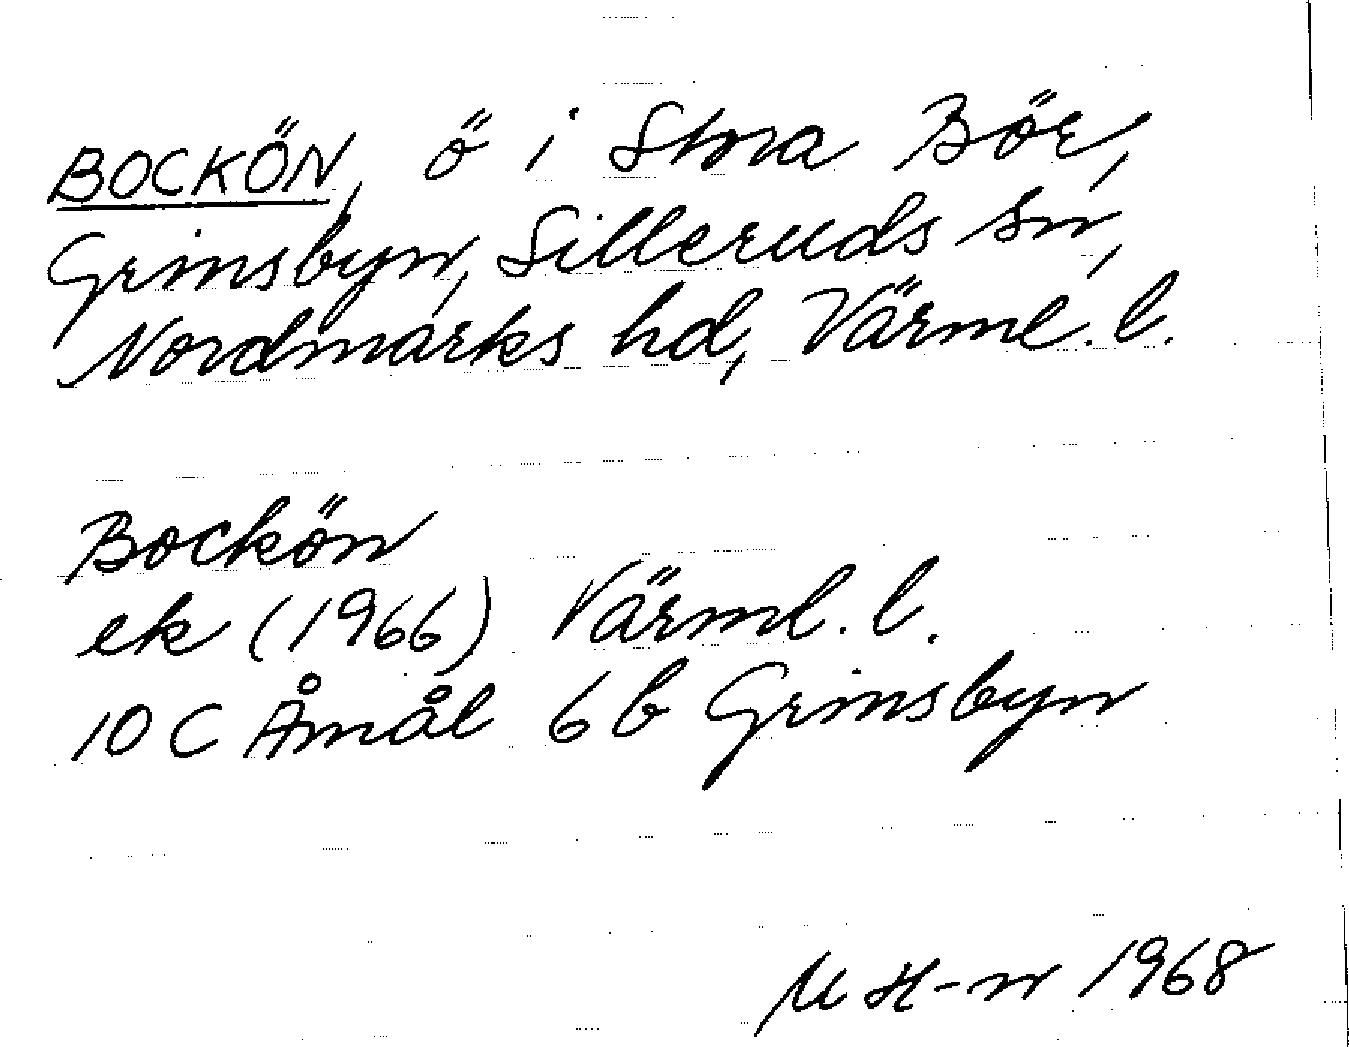 BOCKÖN, ö i Stora Bör,
Grinsbyn, Silleruds sn,
Nordmarks hd, Värml. l.
Bockön
ek (1966) Värml. l.
10 C Åmål 6 b Grinsbyn
M H-n 1968